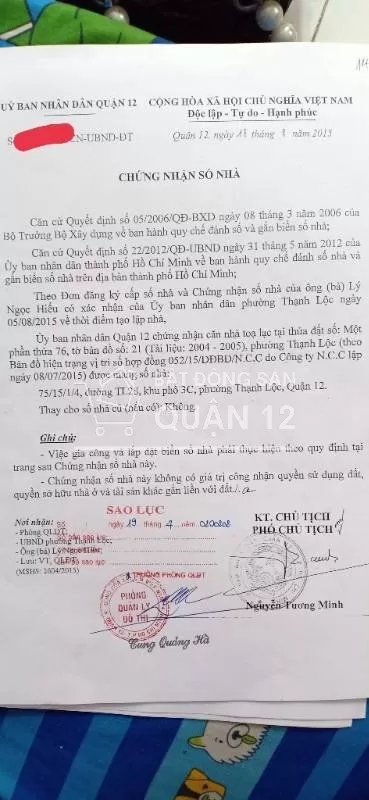 14
ỦY BAN NHÂN DÂN QUẬN 12
CỘNG HÒA XÃ HỘI CHỦ NGHĨA VIỆT NAM
Độc lập - Tự do - Hạnh phúc
S CN-UBND-ĐT
Quận 12, ngày tháng 8 năm 2015
CHỨNG NHẬN SỐ NHÀ
Căn cứ Quyết định số 05/2006/QĐ-BXD ngày 08 tháng 3 năm 2006 của
Bộ Trưởng Bộ Xây dựng về ban hành quy chế đánh số và gắn biển số nhà;
Căn cứ Quyết định số 22/2012/QĐ-UBND ngày 31 tháng 5 năm 2012 của
Ủy ban nhân dân thành phố Hồ Chí Minh về ban hành quy chế đánh số nhà và
gắn biển số nhà trên địa bàn thành phố Hồ Chí Minh;
Theo Đơn đăng ký cấp số nhà và Chứng nhận số nhà của ông (bà) Lý
Ngọc Hiếu có xác nhận của Ủy ban nhân dân phường Thạnh Lộc ngày
05/08/2015 về thời điểm tạo lập nhà,
Ủy ban nhân dân Quận 12 chứng nhận căn nhà toạ lạc tại thửa đất số: Một
phần thửa 76, tờ bản đồ số: 21 (Tài liệu: 2004 - 2005), phường Thạnh Lộc (theo
Bản đồ hiện trạng vị trí số hợp đồng 052/15/DĐBĐ/N.C.C do Công ty N.C.C lập
ngày 08/07/2015) được mang số nhà:
75/15/1/4, đường TL28, khu phố 3C, phường Thạnh Lộc, Quận 12.
Thay cho số nhà cũ (nếu có): Không.
BẤT ĐỘNG SẢN
QUẬN 12
Ghi chú:
- Việc gia công và lắp đặt biển số nhà phải thực hiện theo quy định tại
trang sau Chứng nhận số nhà này.
- Chứng nhận số nhà này không có giá trị công nhận quyền sử dụng đất,
quyền sở hữu nhà ở và tài sản khác gắn liền với đất./.
SAO LỤC
Nơi nhận: Số
ngày 19 tháng 4 năm
KT. CHỦ TỊCH
PHÓ CHỦ TỊCH
- Phòng QLĐT;
- UBND phường Thạnh Lộc;
- Ông (bà) Lý Ngọc Hiếu;
- Lưu: VT, QLĐT.
(MSHS: 2604/2015)
TRƯỞNG PHÒNG QLĐT
PHÒNG
QUẢN LÝ
ĐÔ THỊ
Nguyễn Tương Minh
Cung Quảng Hà